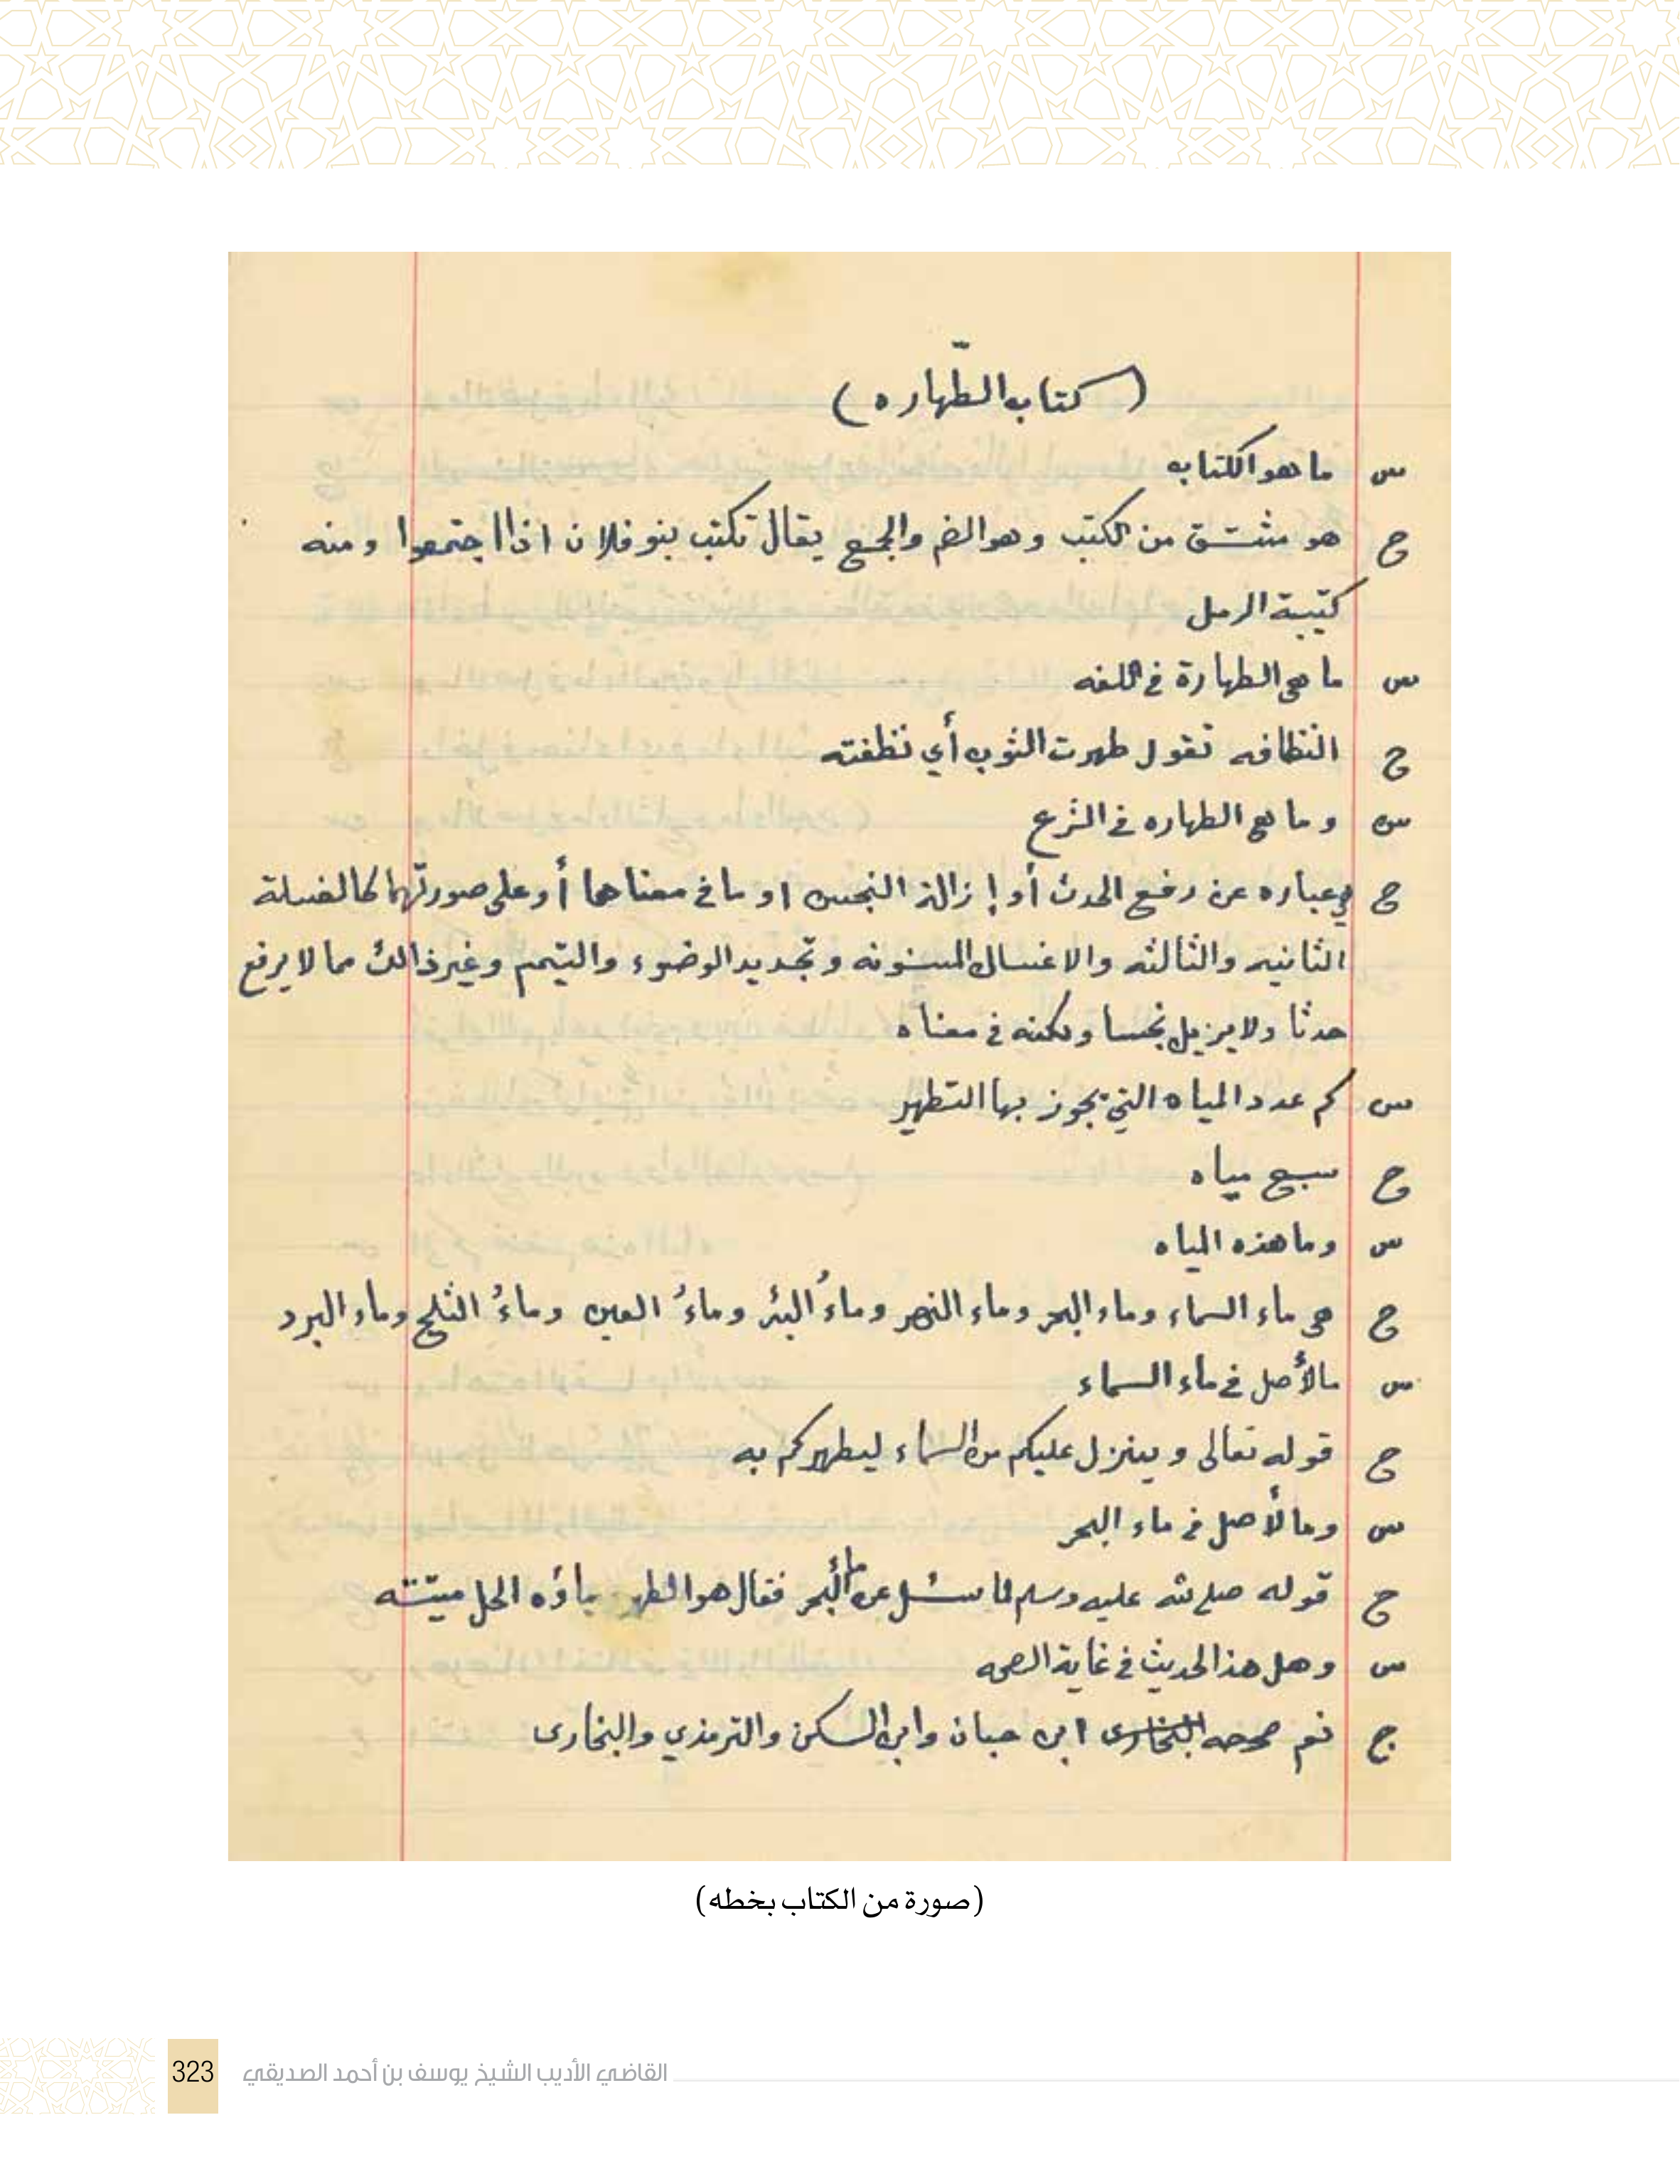 (كتاب الطّهاره)
س ما هو الكتاب
ج هو مشتق من الكتب وهو الضم والجمع يقال تكتب بنو فلان اذا اجتمعوا ومنه
كتيبة الرمل
س ما هي الطهارة في اللغه
ج النظافه تقول طهرت الثوب أي نظفته
س وما هي الطهاره في الشرع
ج هي عباره عن رفع الحدث أو إزالة النجس او ما في معناها أو على صورتهما كالغسلة
الثانيه والثالثه والاغسال المسنونه وتجديد الوضوء والتيمم وغير ذالك مما لا يرفع
حدثا ولا يزيل نجسا ولكنه في معناه
س كم عدد المياه التي يجوز بها التطهير
ج سبع مياه
س وما هذه المياه
ج هي ماء السماء وماء البحر وماء النهر وماءُ البئر وماءُ العين وماءُ الثلج وماء البرد
س مالأصل في ماء السماء
ج قوله تعالى وينزل عليكم من السماء ليطهركم به
س ومالأصل في ماء البحر
ج قوله صلى الله عليه وسلم لما سئل عن ماء البحر فقال هو الطهور ماؤه الحل ميتته
س وهل هذا الحديث في غاية الصحه
ج نعم صححه البخارى ابن حبان وابن السكن والترمذي والبخارى
(صورة من الكتاب بخطه)
323 القاضي الأديب الشيخ يوسف بن أحمد الصديقي